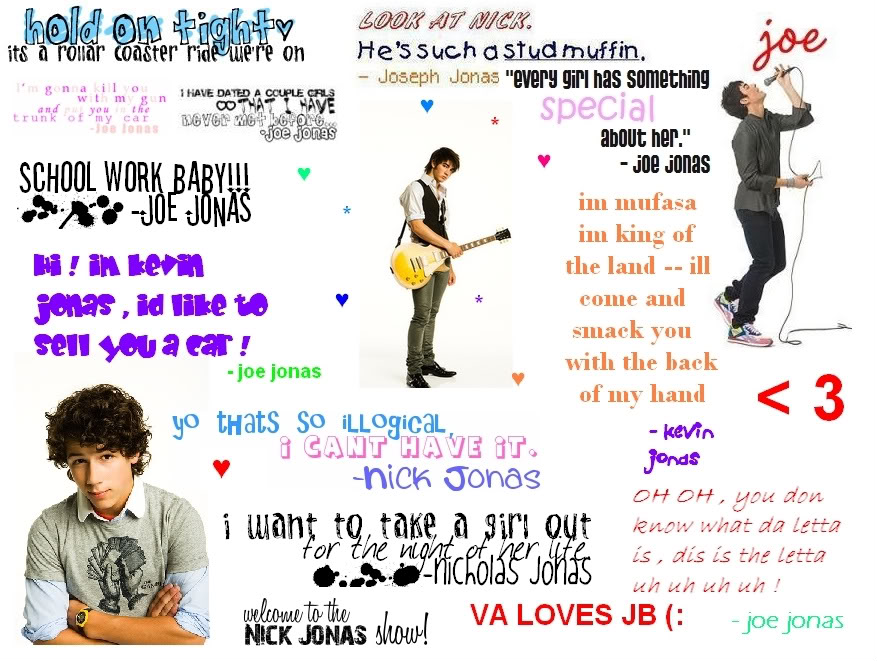 hold on tight
its a rollar coaster ride we're on
I'm gonna kill you
with my gun
and put you in the
trunk of my car
-Joe Jonas
I HAVE DATED A COUPLE GIRLS
THAT I HAVE
never met before...
-Joe Jonas
LOOK AT NICK.
He's such a stud muffin.
- Joseph Jonas
"every girl has something
special
about her."
- Joe Jonas
joe
SCHOOL WORK BABY!!!
-JOE JONAS
Hi ! im kevin
jonas , id like to
sell you a car !
- joe jonas
im mufasa
im king of
the land -- ill
come and
smack you
with the back
of my hand
- kevin
jonas
< 3
yo thats so illogical,
i CANT HAVE iT.
-Nick Jonas
i want to take a girl out
for the night of her life
-Nicholas Jonas
OH OH , you don
know what da letta
is , dis is the letta
uh uh uh uh !
- joe jonas
welcome to the
NICK JONAS show!
VA LOVES JB (: